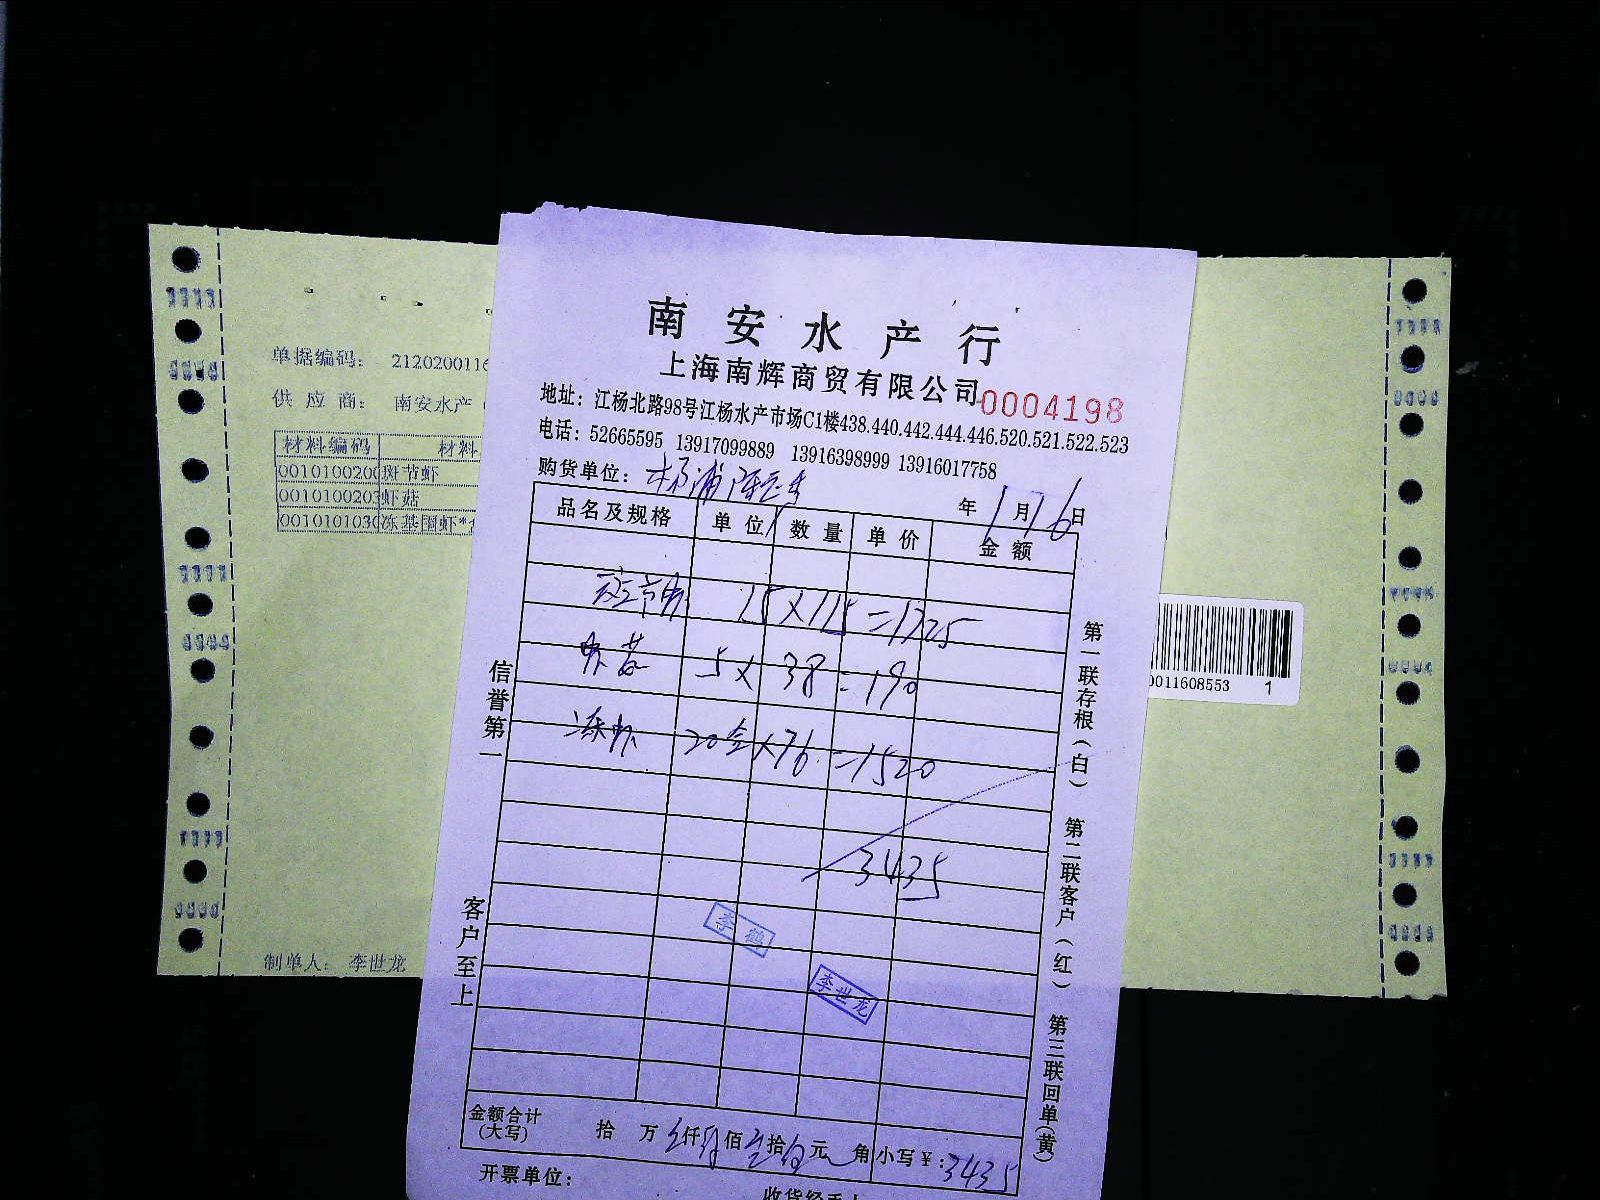 南安水产行
上海南辉商贸有限公司 0004198
地址：江杨北路98号江杨水产市场C1楼438.440.442.444.446.520.521.522.523
电话：52665595 13917099889 13916398999 13916017758
购货单位：杨浦陈 年1月16日
品名及规格 单位 数量 单价 金额
斑节虾 15×115=1725
虾菇 5×38=190
冻虾 20盒×76=1520
3435
李鹤
李世龙
金额合计(大写) 拾 万 叁仟肆佰叁拾伍元 角 小写￥:3435
开票单位：
信誉第一 客户至上
第一联存根(白) 第二联客户(红) 第三联回单(黄)
单据编码： 2120200116
供应商： 南安水产
材料编码 材料
0010100200 斑节虾
001010020 虾菇
0010101030 冻基围虾*
制单人： 李世龙
0011608553 1